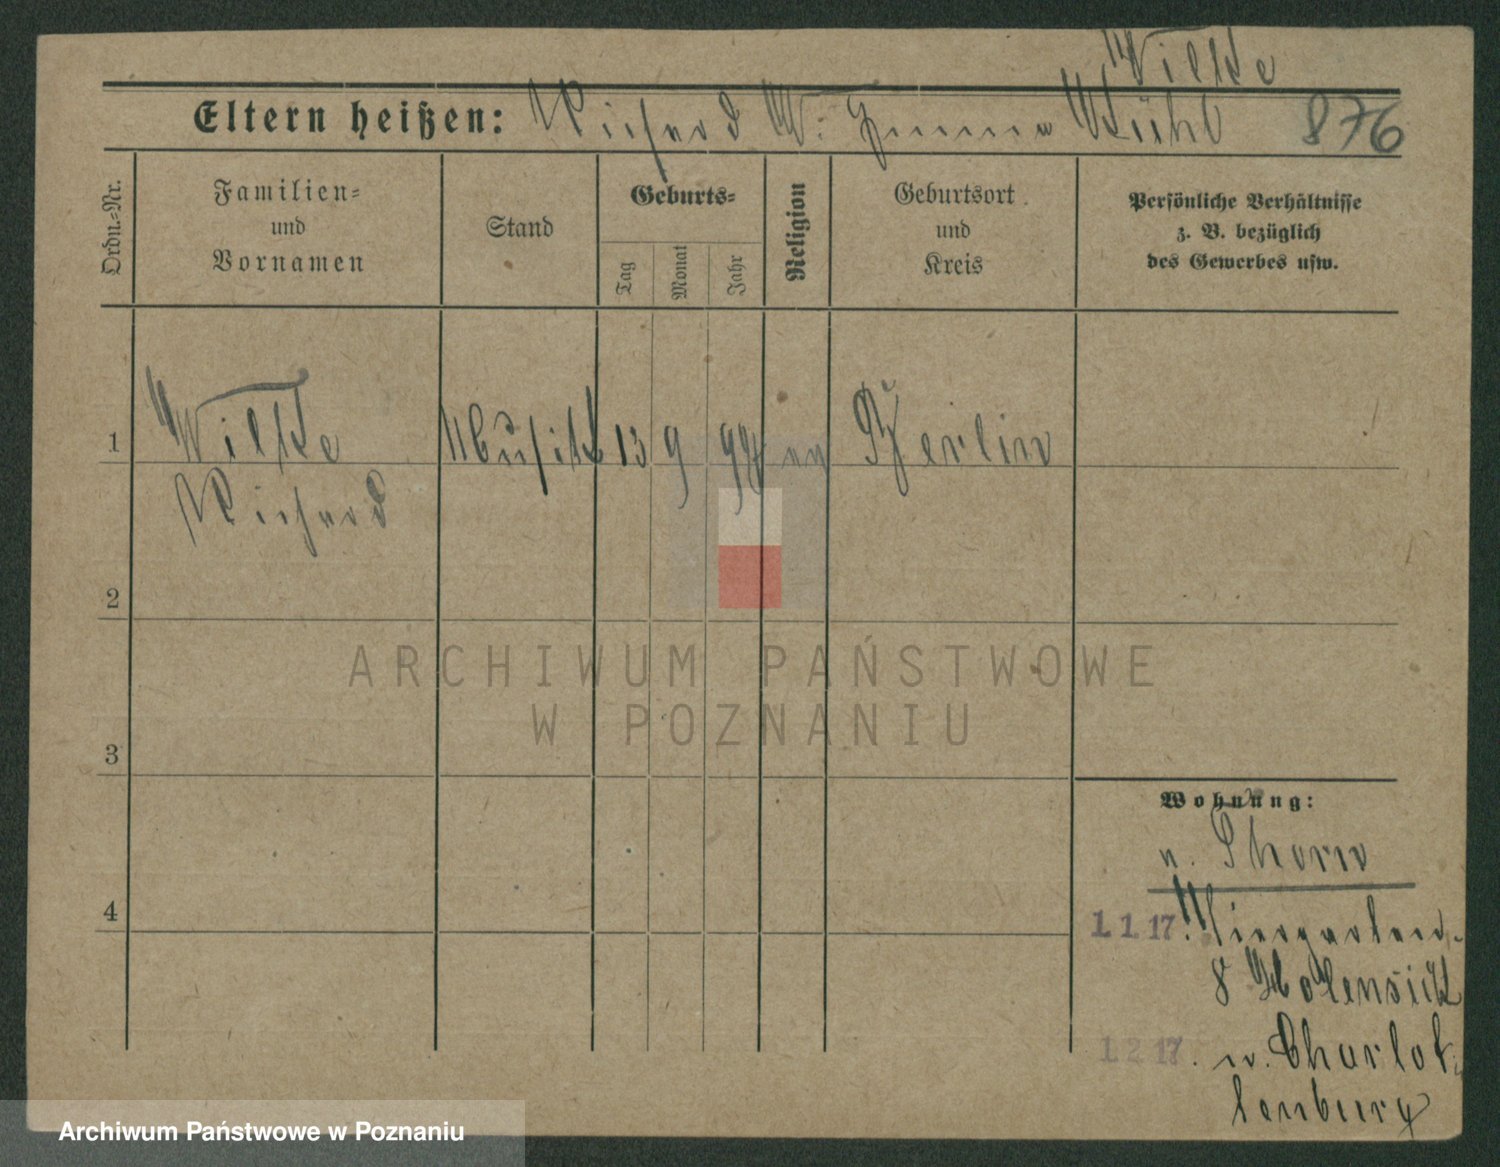 Wilke
Eltern heißen: Richard W. Emma Kühl 876
Ordn.=Nr.
Familien=
und
Vornamen
Stand
Geburts=
Tag
Monat
Jahr
Religion
Geburtsort
und
Kreis
Persönliche Verhältnisse
z. B. bezüglich
des Gewerbes usw.
1 Wilke Musik 13 9 99 ev Berlin
Richard
2
ARCHIWUM PAŃSTWOWE
W POZNANIU
3
Wohnung:
n. Thorn
4
1.1.17. Tiergarten-
8
1.2.17. n. Charlot-
tenburg
Archiwum Państwowe w Poznaniu